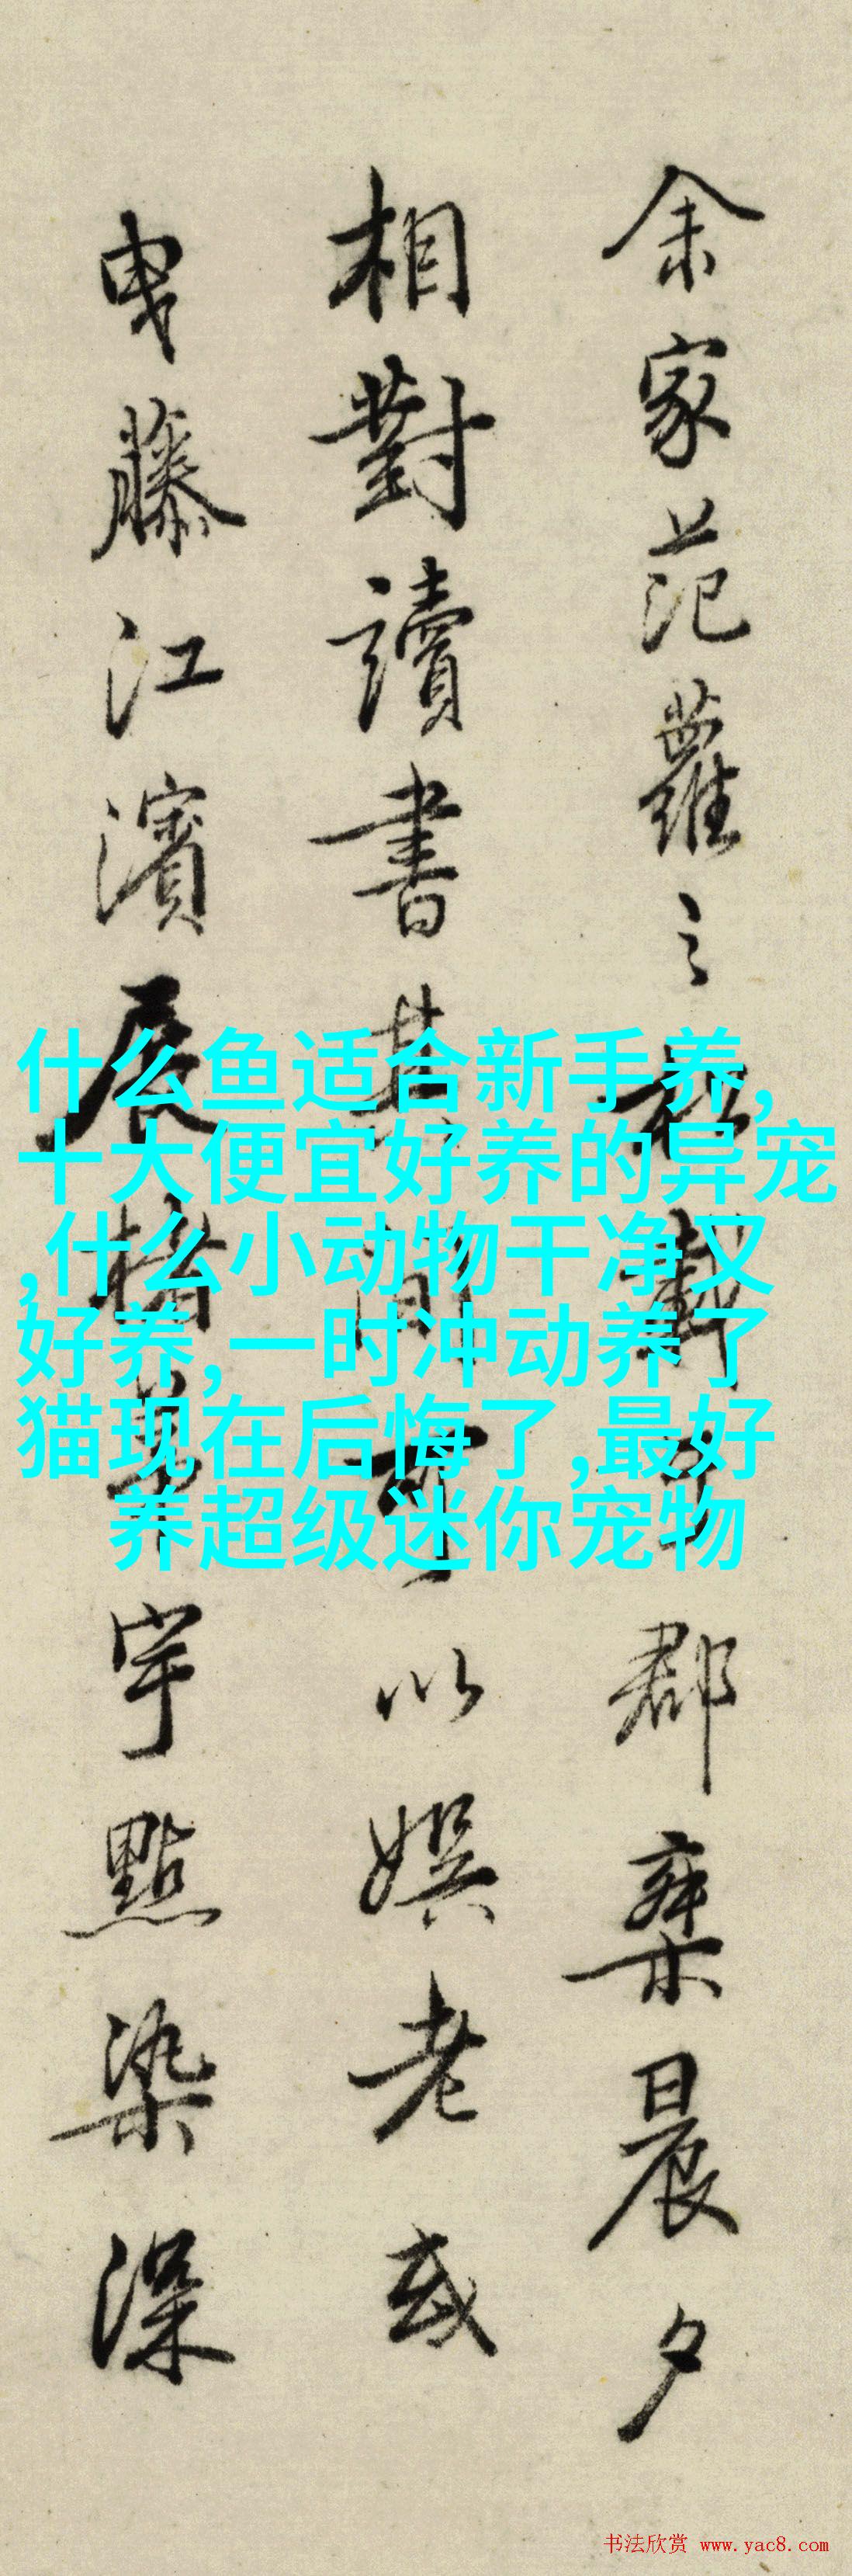 余家范蘿之
郡棐晨夕
相對讀書其間
以娛老或
曳藤江濱展楮
字點染深
什么鱼适合新手养,
十大便宜好养的异宠
,什么小动物干净又
好养,一时冲动养了
猫现在后悔了,最好
养超级迷你宠物
书法欣赏 www.yac8.com